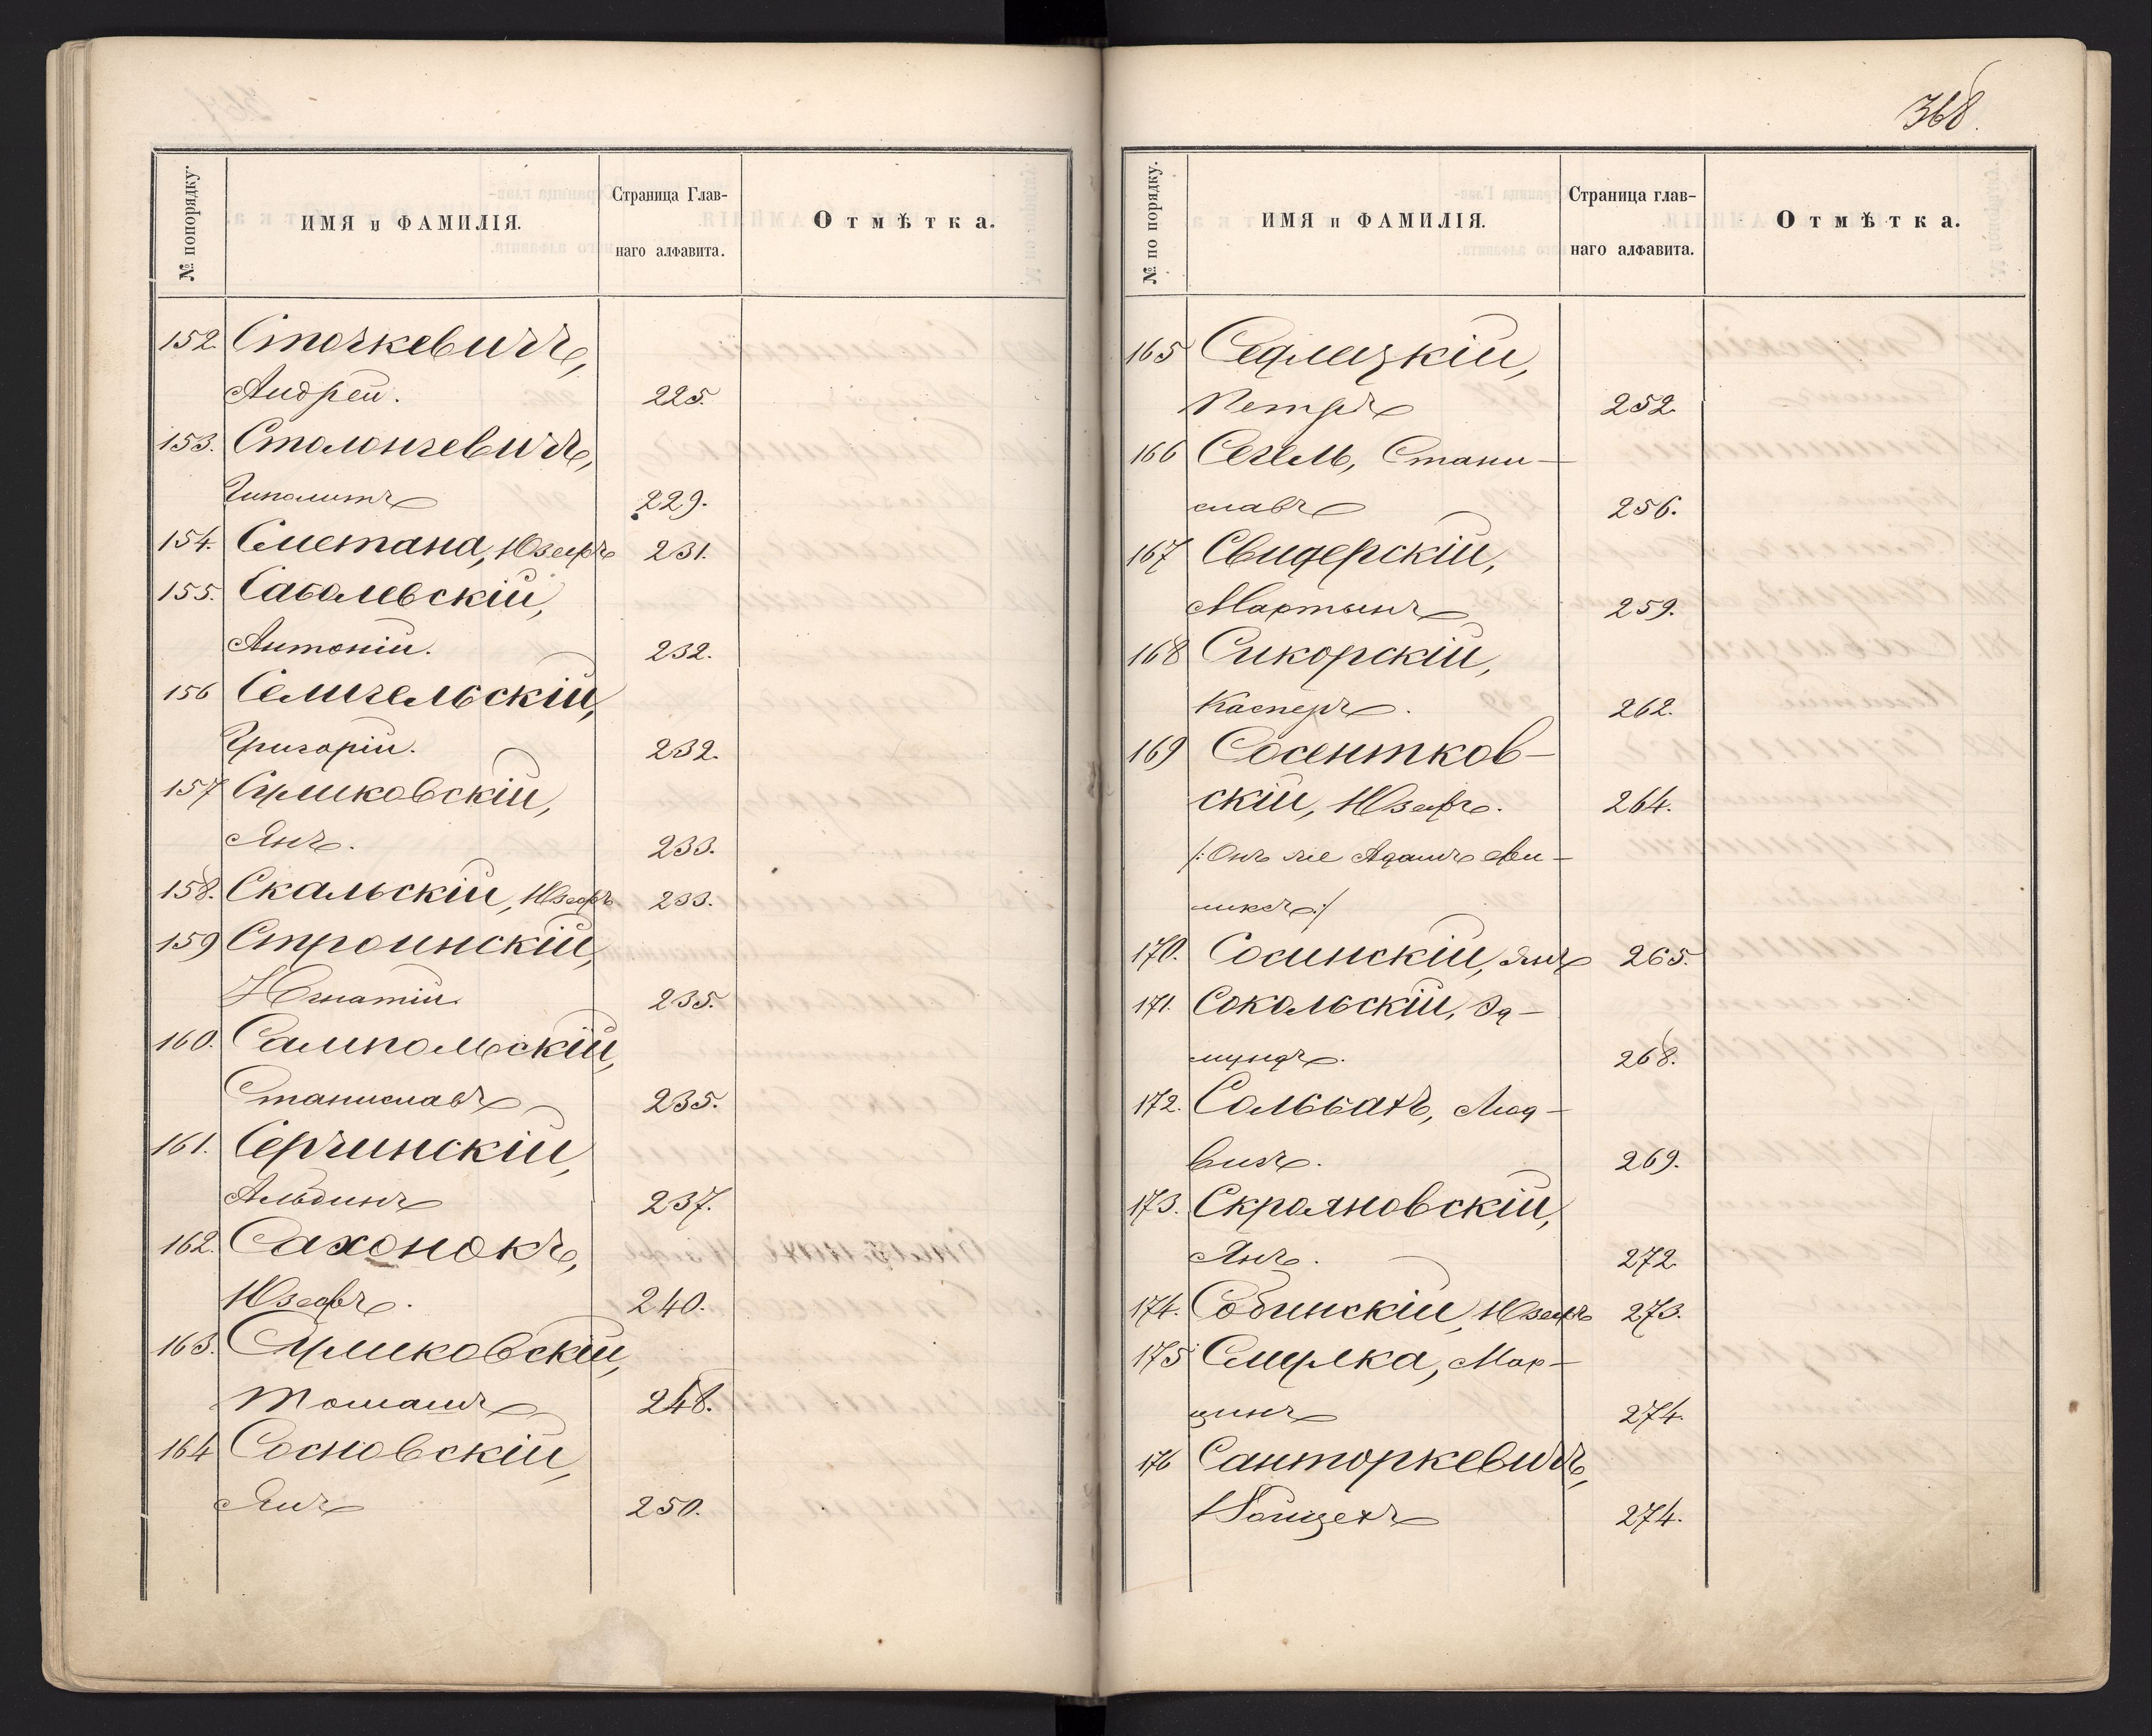 № попорядку.
ИМЯ и ФАМИЛІЯ.
Страница Глав-
наго алфавита.
Отмѣтка.
152 Сточкевичъ,
Андрей. 225.
153. Столончевичъ,
Гиполитъ 229.
154. Сметана, Юзефъ 231.
155. Саболевскій,
Антоній. 232.
156 Семигельскій,
Григорій. 232.
157 Суликовскій,
Янъ. 233.
158. Скальскій, Юзефъ 233.
159 Строинскій,
Игнатій. 235.
160. Сампольскій,
Станиславъ 235.
161. Серчинскій,
Альбинъ 237.
162. Сахонокъ,
Юзефъ. 240.
163. Сумиковскій,
Томашъ 248.
164 Сосновскій,
Янъ 250.
368.
№ по порядку.
ИМЯ и ФАМИЛІЯ.
Страница глав-
наго алфавита.
Отмѣтка.
165 Седлецкій,
Петръ 252.
166 Сегель, Стани-
славъ 256.
167 Свидерскій,
Мартынъ 259.
168 Сикорскій,
Касперъ. 262.
169 Сосентков-
скій, Юзефъ. 264.
/:Онъ же Адамъ Фе-
ликсъ:/
170. Сосинскій, Янъ 265.
171. Сокольскій, Эд-
мундъ. 268.
172. Сольбахъ, Люд-
вигъ. 269.
173. Скрояновскій,
Янъ. 272
174. Собинскій, Юзефъ 273.
175 Смулка, Мар-
цинъ 274.
176 Санторкевичъ,
Войцехъ 274.